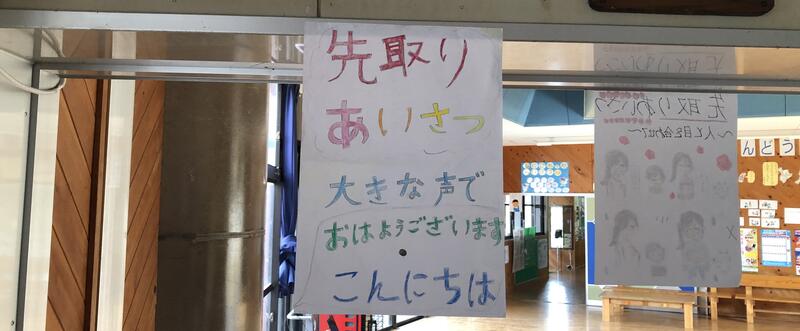 先取り
あいさつ
大きな声で
おはようございます
こんにちは
先取りあいさつ
〜人と目を合わせて〜
んどう